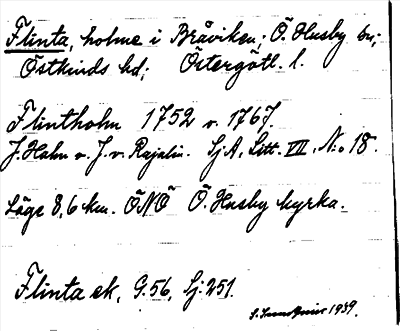 Flinta, holme i Bråviken; Ö. Husby sn;
Östkinds hd; Östergötl. l.
Flintholm 1752 o. 1767.
J. Hahn o. J. v. Rajalin. Sj.A, Litt. VII, N:o 18.
Läge 8,6 km. ÖNÖ Ö. Husby kyrka.
Flinta ek, G.56, Sj:251.
1939.